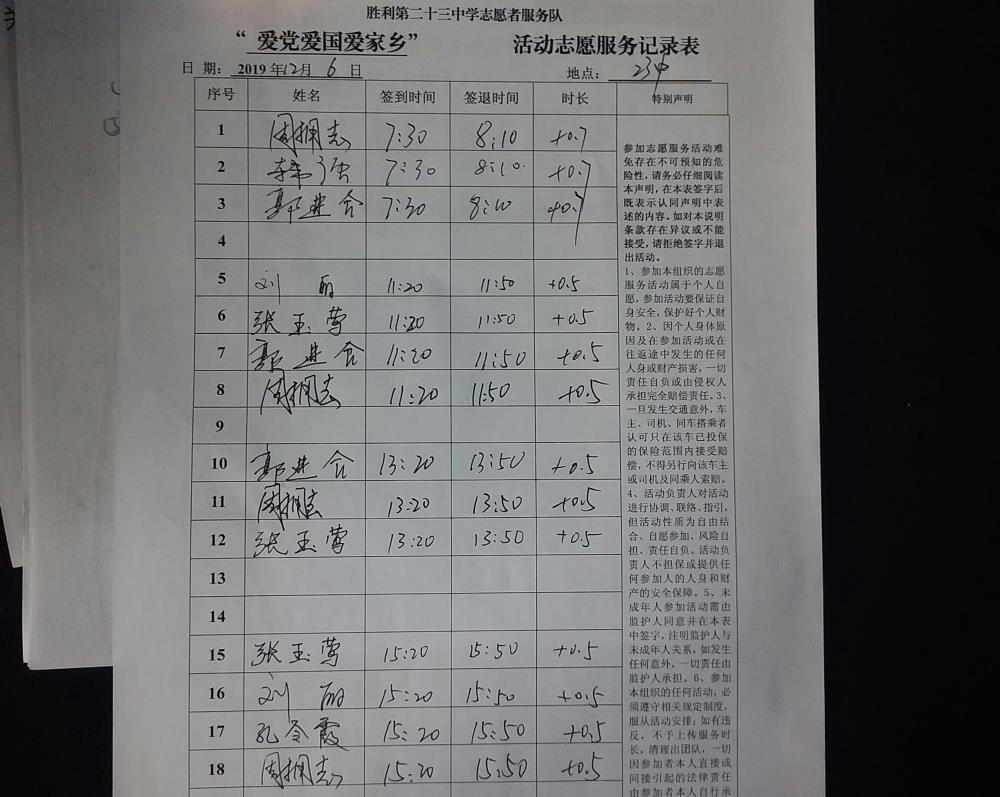 胜利第二十三中学志愿者服务队
“ 爱党爱国爱家乡” 活动志愿服务记录表
日 期: 2019 年12月 6 日 地点: 23中
序号 姓名 签到时间 签退时间 时长 特别声明
1 周拥志 7:30 8:10 +0.7
2 7:30 8:10 +0.7
3 郭进会 7:30 8:10 +0.7
4
5 刘 丽 11:20 11:50 +0.5
6 张玉莺 11:20 11:50 +0.5
7 郭进会 11:20 11:50 +0.5
8 周拥志 11:20 11:50 +0.5
9
10 郭进会 13:20 13:50 +0.5
11 周拥志 13:20 13:50 +0.5
12 张玉莺 13:20 13:50 +0.5
13
14
15 张玉莺 15:20 15:50 +0.5
16 刘 丽 15:20 15:50 +0.5
17 孔令霞 15:20 15:50 +0.5
18 周拥志 15:20 15:50 +0.5
参加志愿服务活动难
免存在不可预知的危
险性,请务必仔细阅读
本声明,在本表签字后
既表示认同声明中表
述的内容。如对本说明
条款存在异议或不能
接受,请拒绝签字并退
出活动。
1、参加本组织的志愿
服务活动属于个人自
愿,参加活动要保证自
身安全,保护好个人财
物。2、因个人身体原
因及在参加活动或在
往返途中发生的任何
人身或财产损害,一切
责任自负或由侵权人
承担完全赔偿责任。3、
一旦发生交通意外,车
主、司机、同车搭乘者
认可只在该车已投保
的保险范围内接受赔
偿,不得另行向该车主
或司机及同乘人索赔。
4、活动负责人对活动
进行协调、联络、指引,
但活动性质为自由结
合、自愿参加、风险自
担、责任自负。活动负
责人不担保或提供任
何参加人的人身和财
产的安全保障。5、未
成年人参加活动需由
监护人同意并在本表
中签字,注明监护人与
未成年人关系,如发生
任何意外,一切责任由
监护人承担。6、参加
本组织的任何活动,必
须遵守相关规定制度,
服从活动安排;如有违
反,不予上传服务时
长,清理出团队,一切
因参加者本人直接或
间接引起的法律责任
由参加者本人自行承